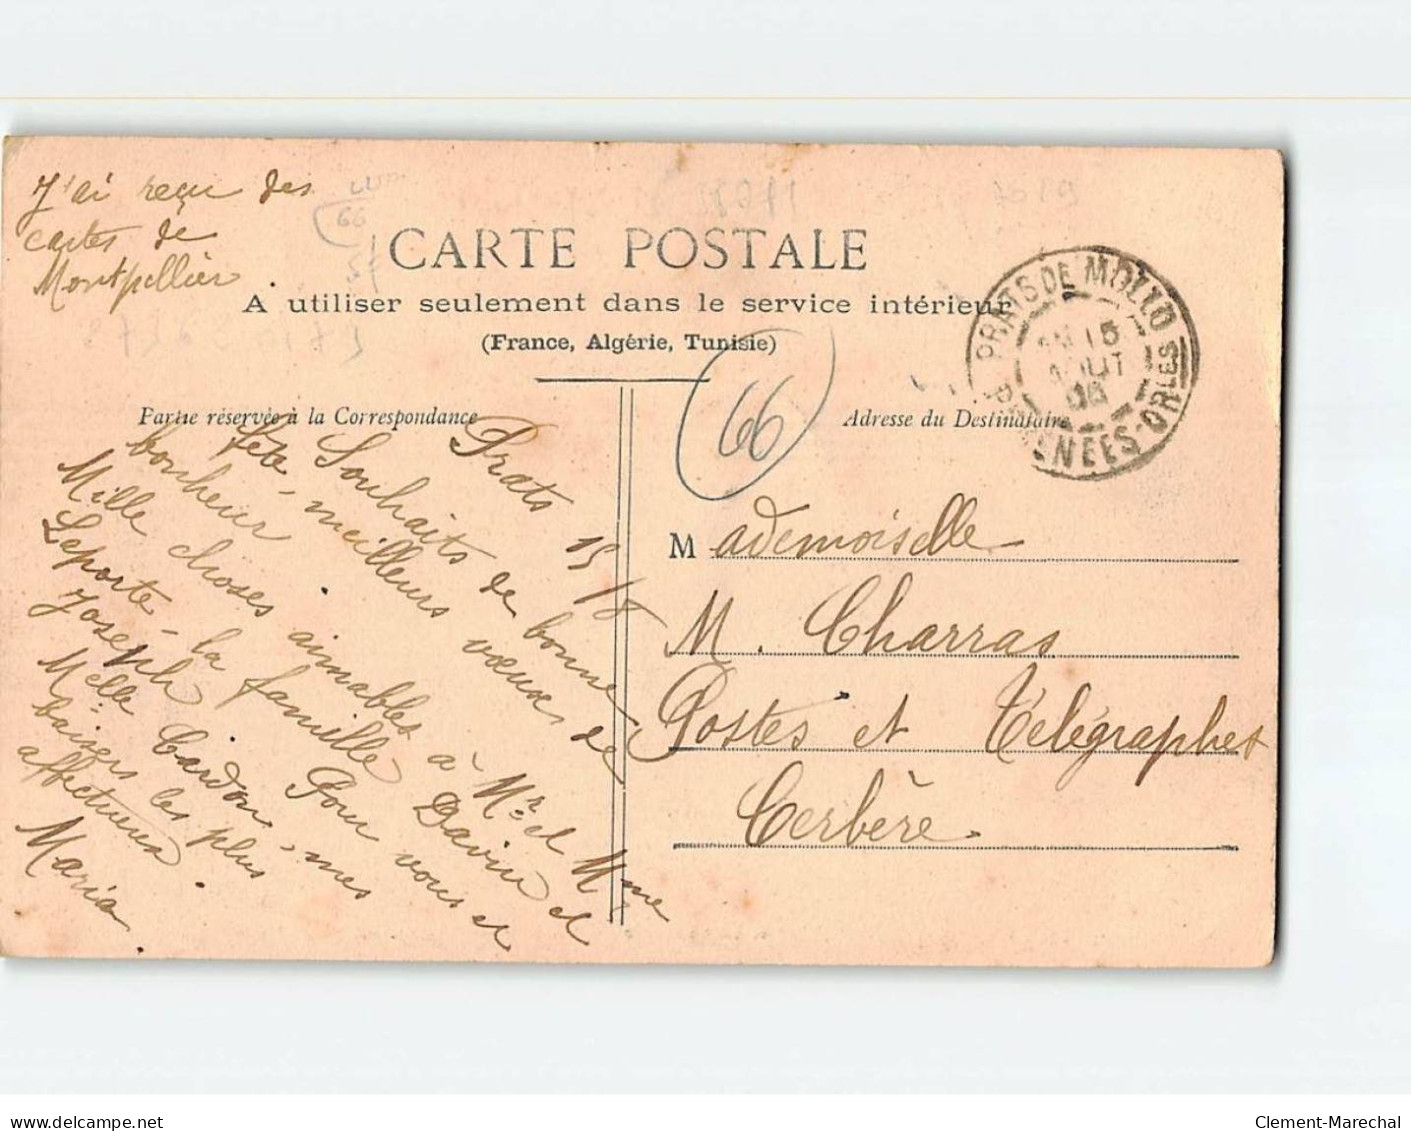 J'ai reçu des
cartes de
Montpellier
66
CARTE POSTALE
A utiliser seulement dans le service intérieur
(France, Algérie, Tunisie)
Partie réservée à la Correspondance
Adresse du Destinataire
66
PRATS DE MOLLO
15
AOUT
PYRENEES-ORLES
Prats 15/8
Souhaits de bonne
fête, meilleurs vœux de
bonheur.
Mille choses aimables à Mr et Mme
Laporte, la famille Davin et
Joseph. Pour vous et
Melle Cardon, mes
baisers les plus
affectueux.
Maria
Mademoiselle
M. Charras
Postes et Télégraphes
Cerbère.
delcampe.net
Clement-Marechal